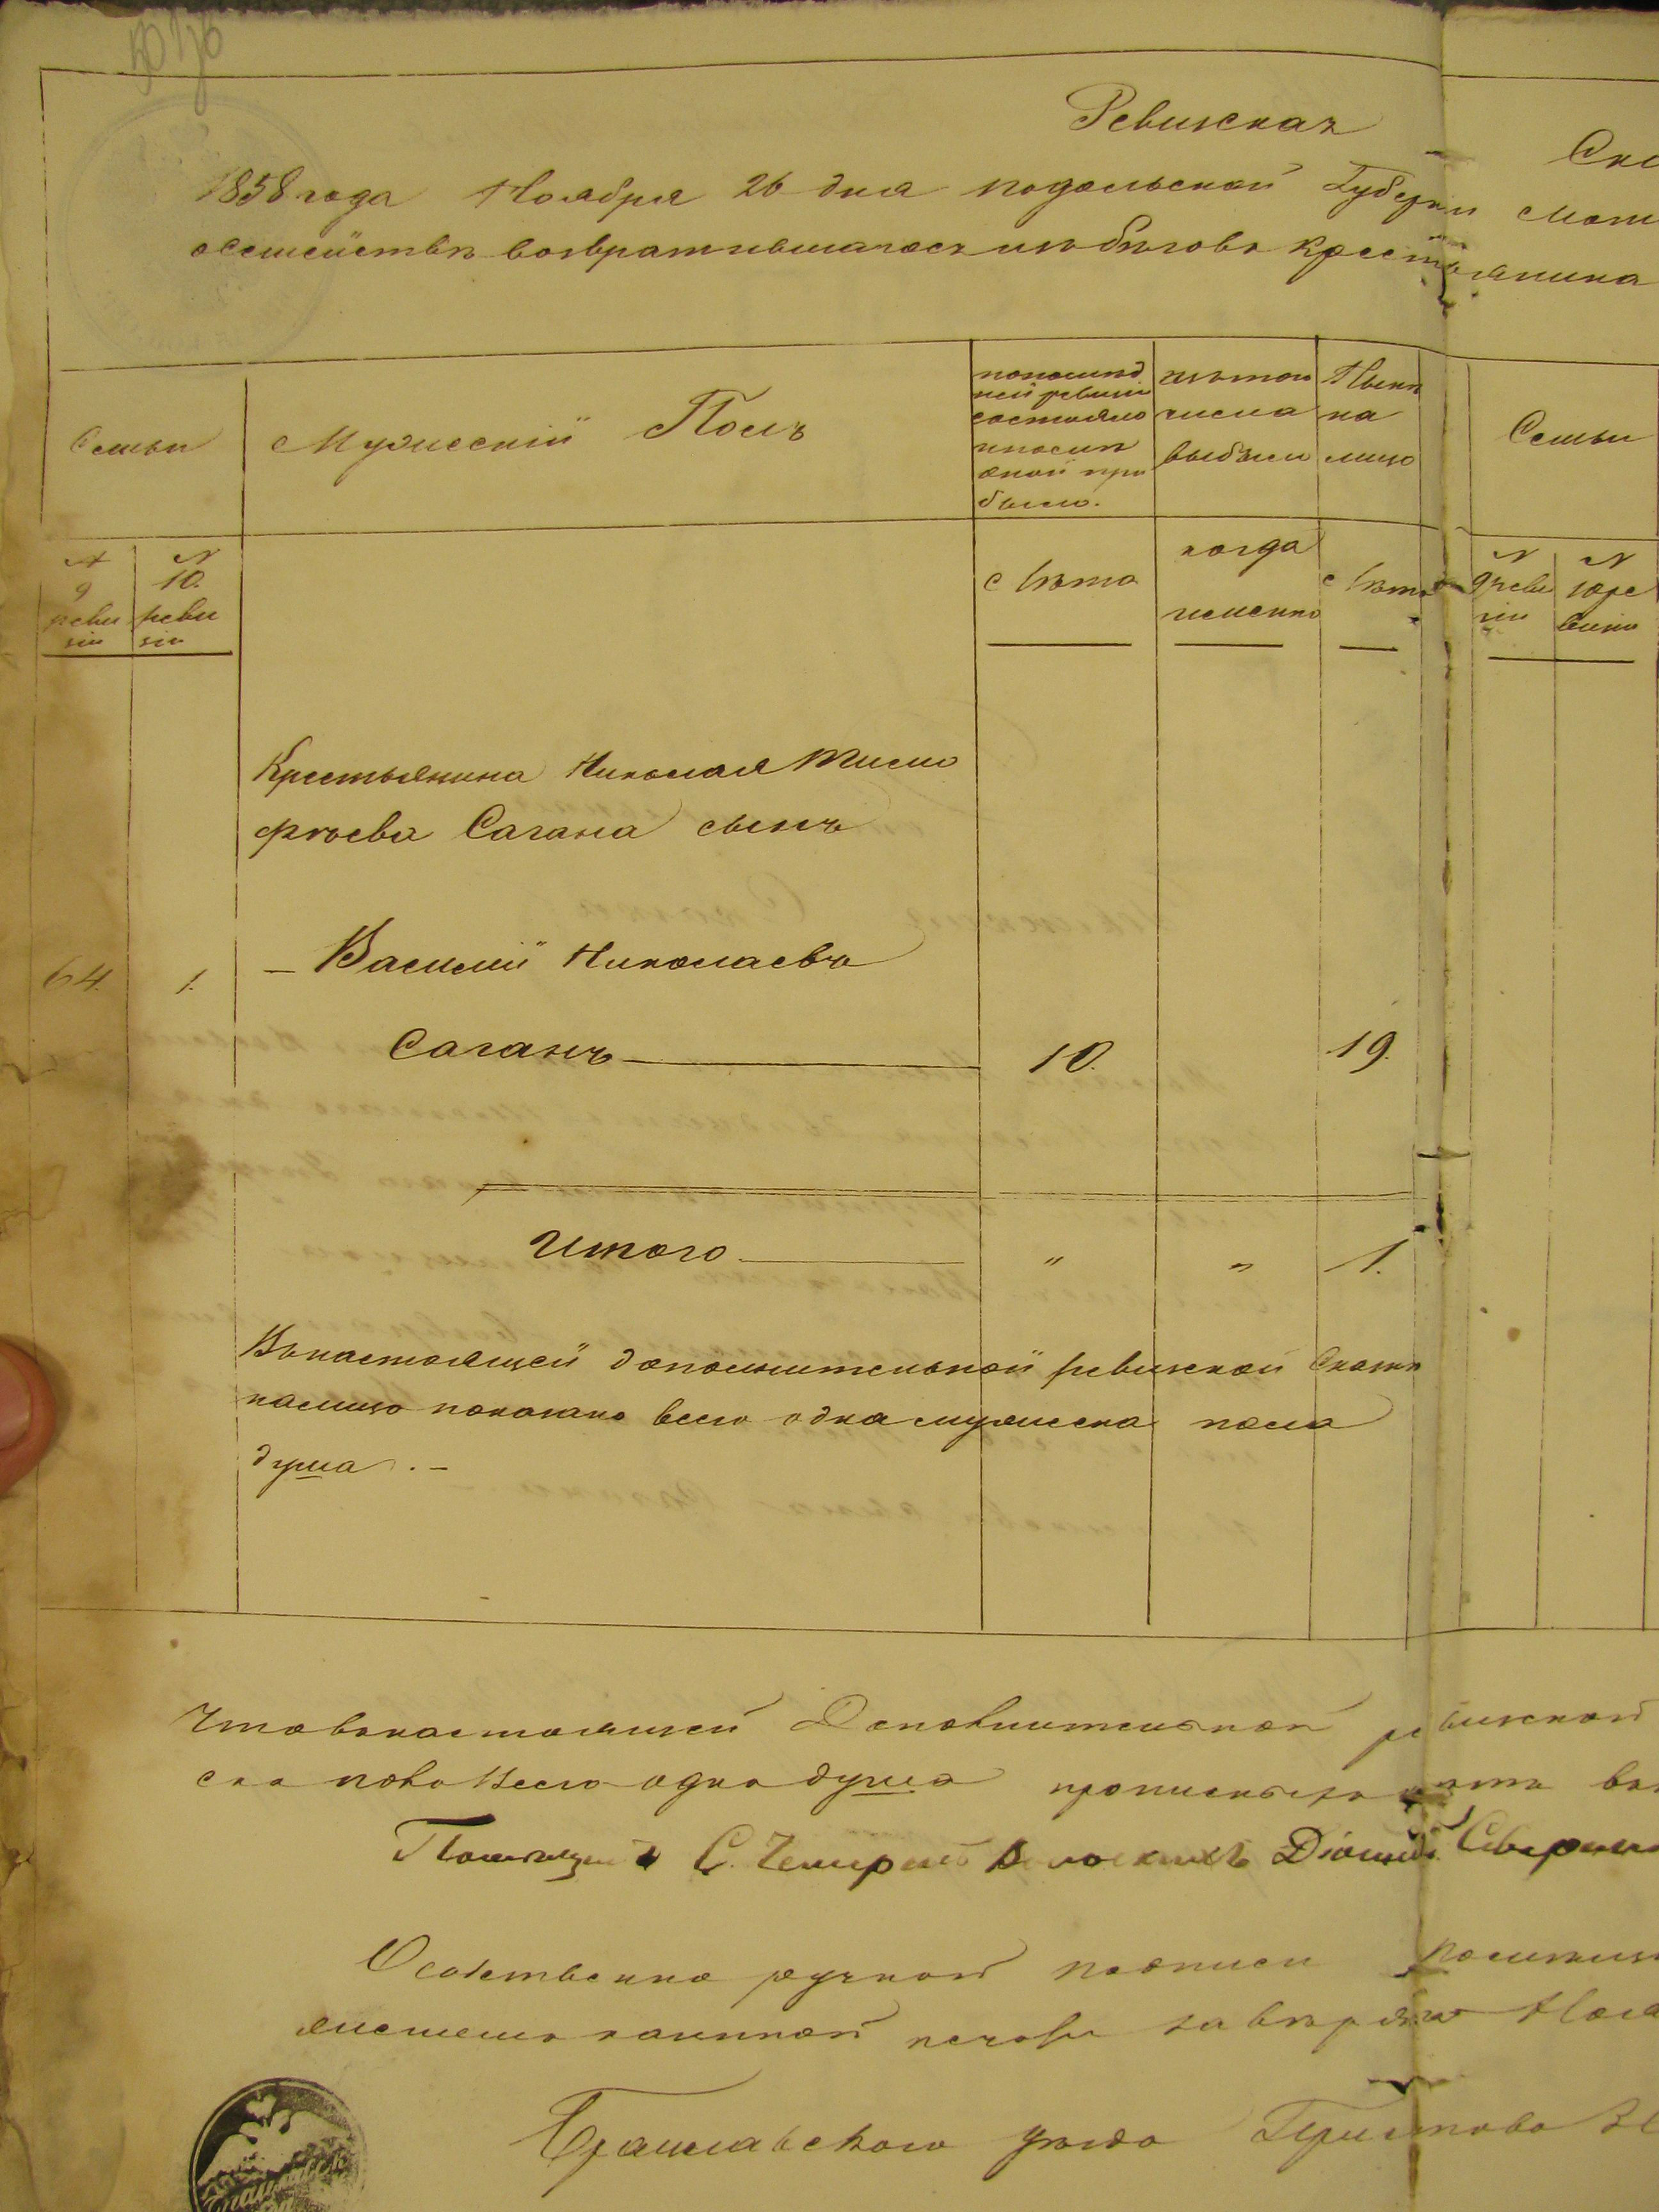 Ревизская
Ска
1858 года Ноября 26 дня подольской Губернии
осемействѣ возвратившагося изъ бѣговъ крестьянина
Семьи
Мужескій Полъ
попослѣд
ней ревизіи
состояло
ипослѣ
оной при
было.
изътого
числа
выбыло
Нынѣ
на
лицо
Семьи
N
9
реви
зіи
N
10.
реви
зіи
Лѣта
когда
именно
Лѣта
N
9 реви
зіи
N
10 ре
визіи
Крестьянина Николая Тимо
фѣева Сагана сынъ
64. 1. – Василій Николаевъ
Саганъ 10. 19.
Итого " " 1.
Внастоящей дополнительной ревизской Сказкѣ
налицо показано всего одна мужеска пола
душа. –
Что внастоящей Дополнительной ревизской
ска пола Всего одна душа
Помѣщикъ С.
Собственно ручной подписи
казенной печати завѣряю
Брацлавского уѣзда